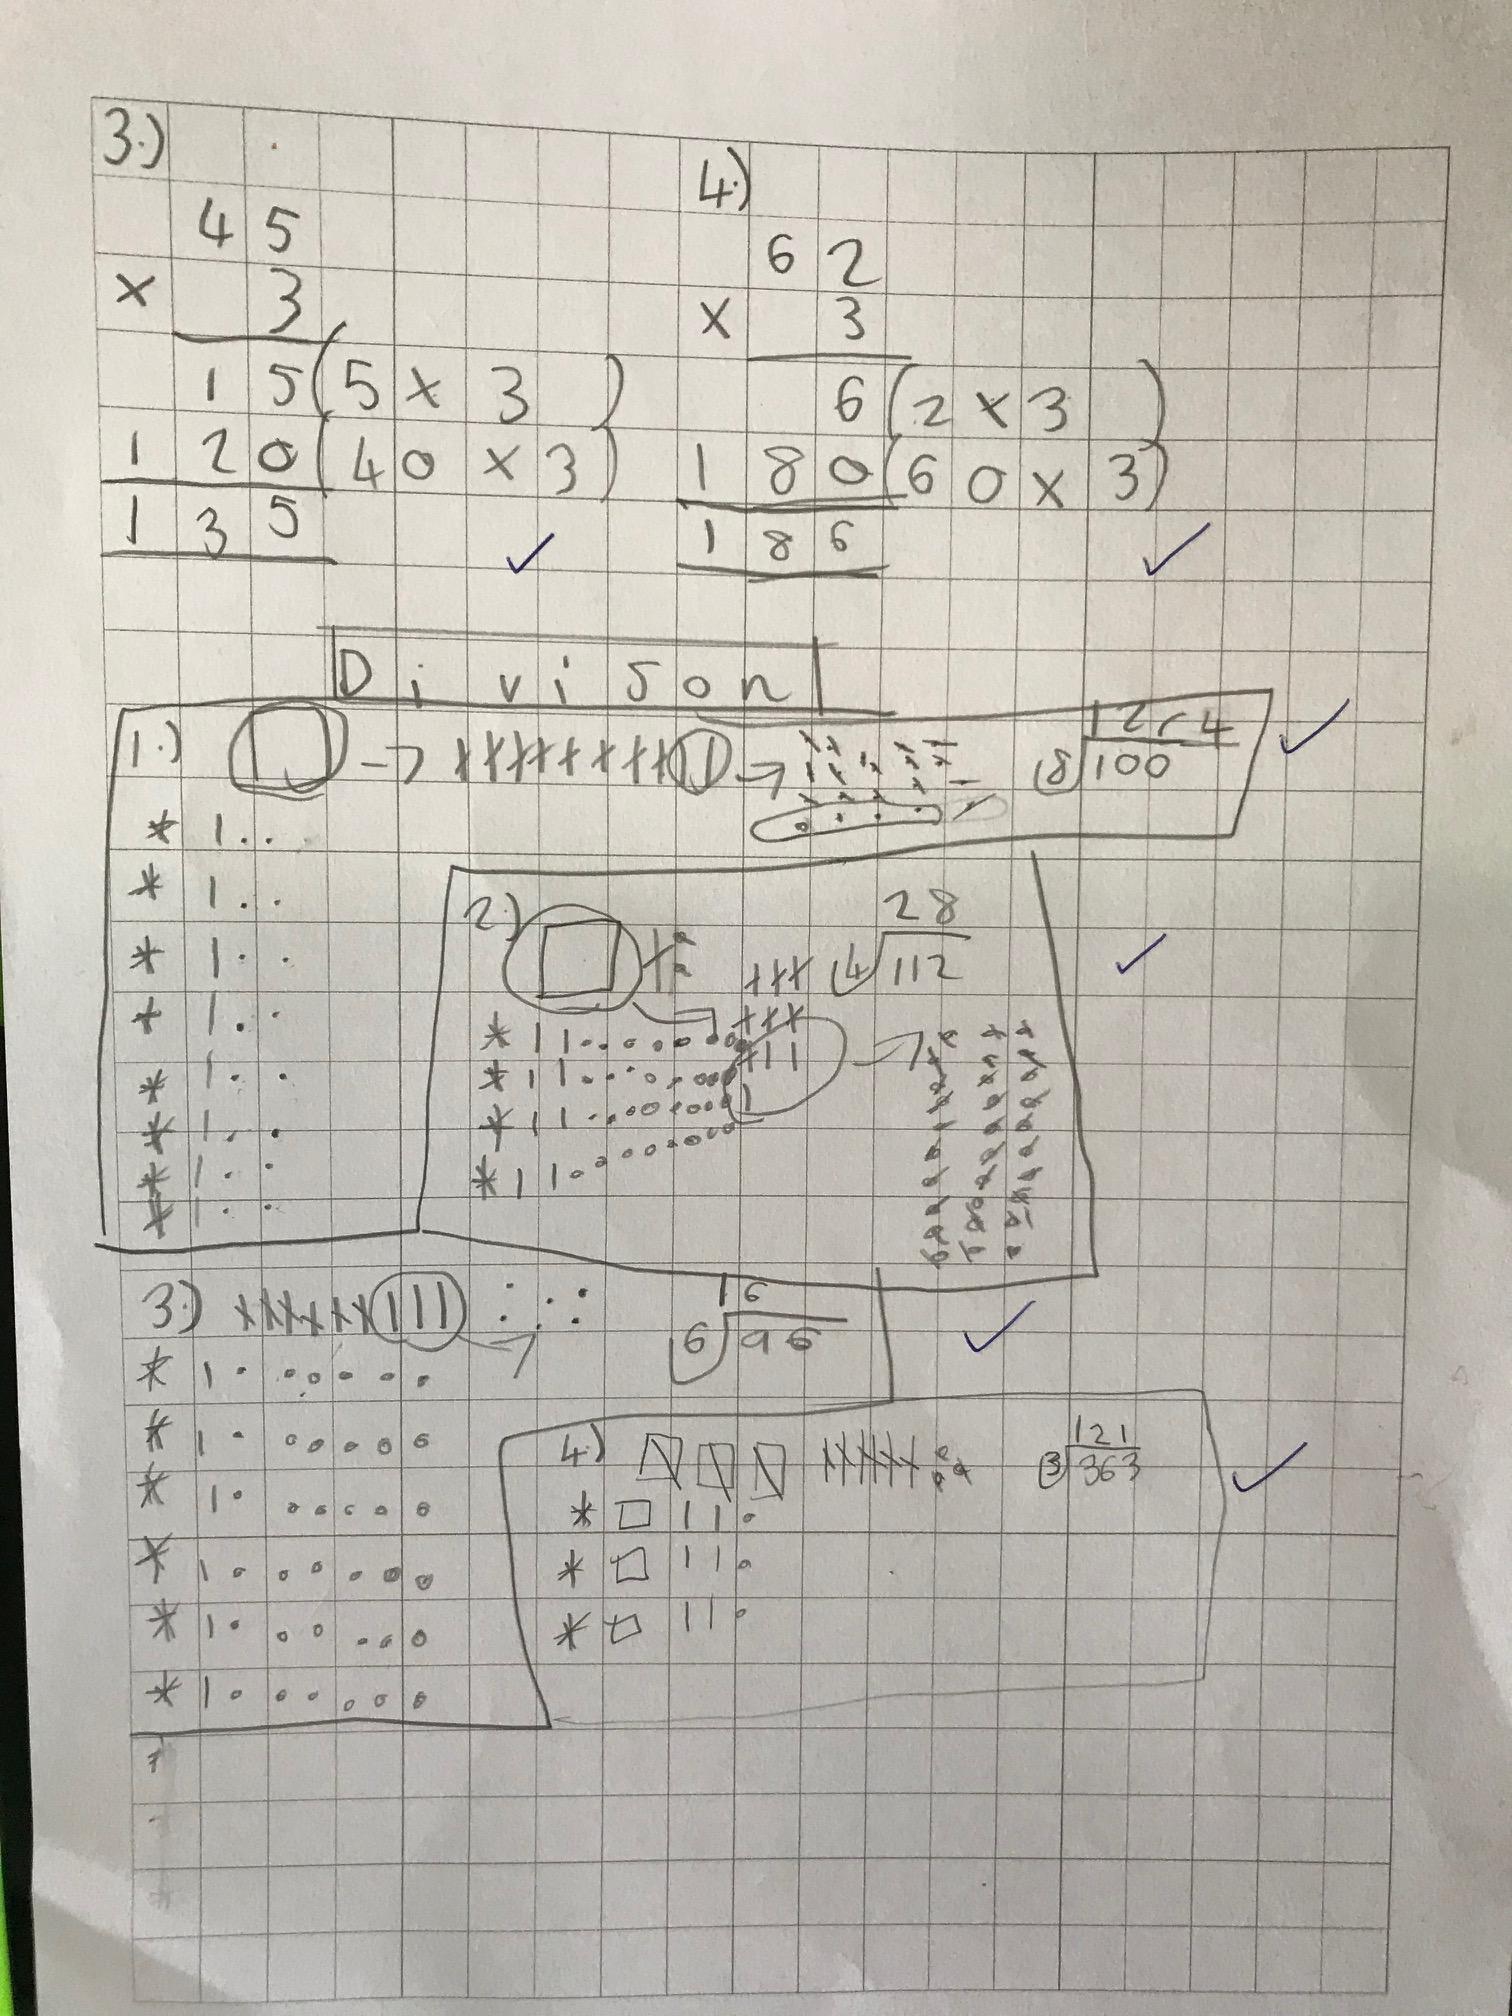 3.)
45
x 3
15 (5 x 3)
120 (40 x 3)
135
4.)
62
x 3
6 (2 x 3)
180 (60 x 3)
186
Divison
1.)
12r4
8 100
2.)
28
4 112
3.)
16
6 96
4.)
121
3 363